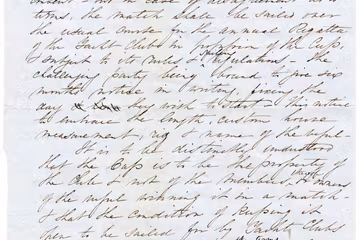 consent & not in case of disagreement as to
terms, the match shall be sailed over
the usual course for the annual Regatta
of the Yacht Club in possession of the Cup,
& subject to its rules & Regulations - the
challenging party being bound to give six
months notice in writing, fixing the
day they wish to start - This notice
to embrace the length, custom house
measurement, rig & name of the vessel.
It is to be distinctly understood
that the Cup is to be the property of
the Club & not of the members, owners
of the vessel winning it in a match -
& that the condition of keeping it
open to be sailed for by Yacht Clubs